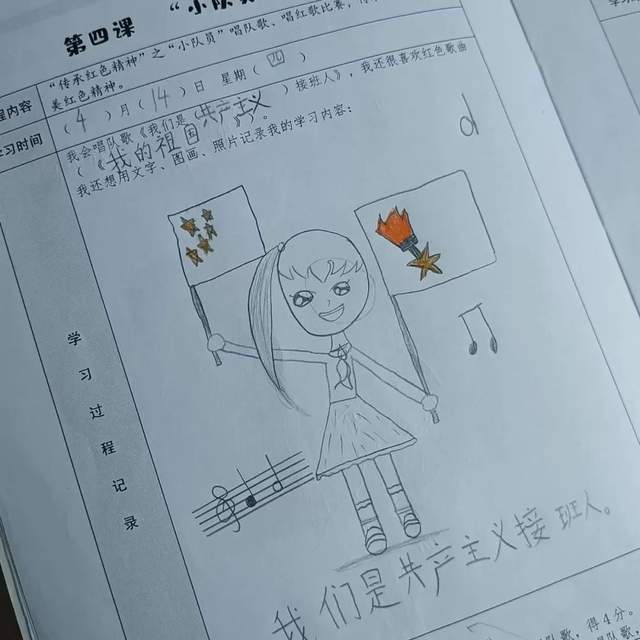 第四课 “小队
“传承红色精神”之“小队员”唱队歌、唱红歌比赛，
美红色精神。
程内容
(4)月(14)日 星期(四)
习时间
我会唱队歌《我们是(共产主义)接班人》，我还很喜欢红色歌曲
(《我的祖国
我还想用文字、图画、照片记录我的学习内容：
学习过程记录
我们是共产主义接班人。
得4分。
队歌，